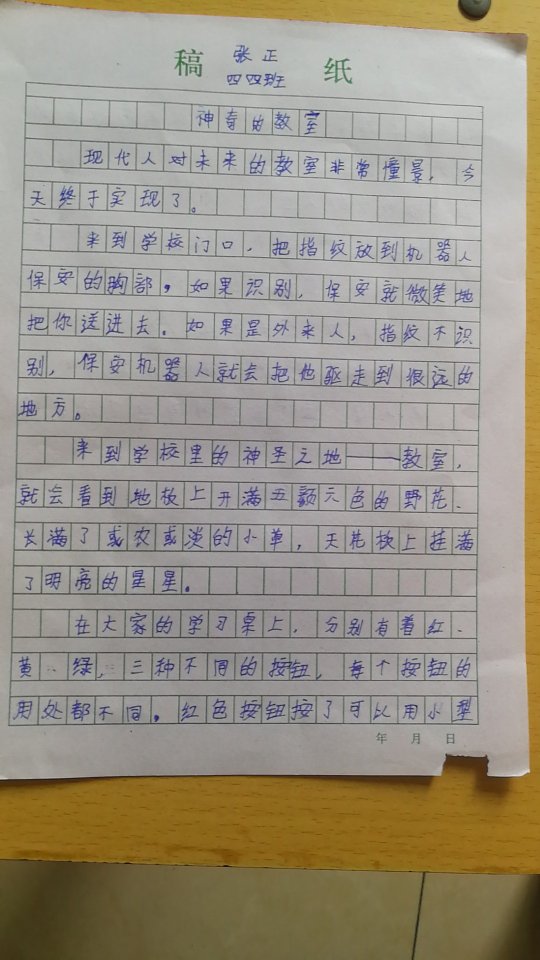 张正
稿 纸
四四班
神奇的教室
现代人对未来的教室非常憧景，今
天终于实现了。
来到学校门口，把指纹放到机器人
保安的胸部，如果识别，保安就微笑地
把你送进去。如果是外来人，指纹不识
别，保安机器人就会把他驱走到很远的
地方。
来到学校里的神圣之地——教室，
就会看到地板上开满五颜六色的野花、
长满了或农或淡的小草，天花板上挂满
了明亮的星星。
在大家的学习桌上，分别有着红、
黄、绿，三种不同的按钮，每个按钮的
用处都不同。红色按钮按了可以用小型
年 月 日